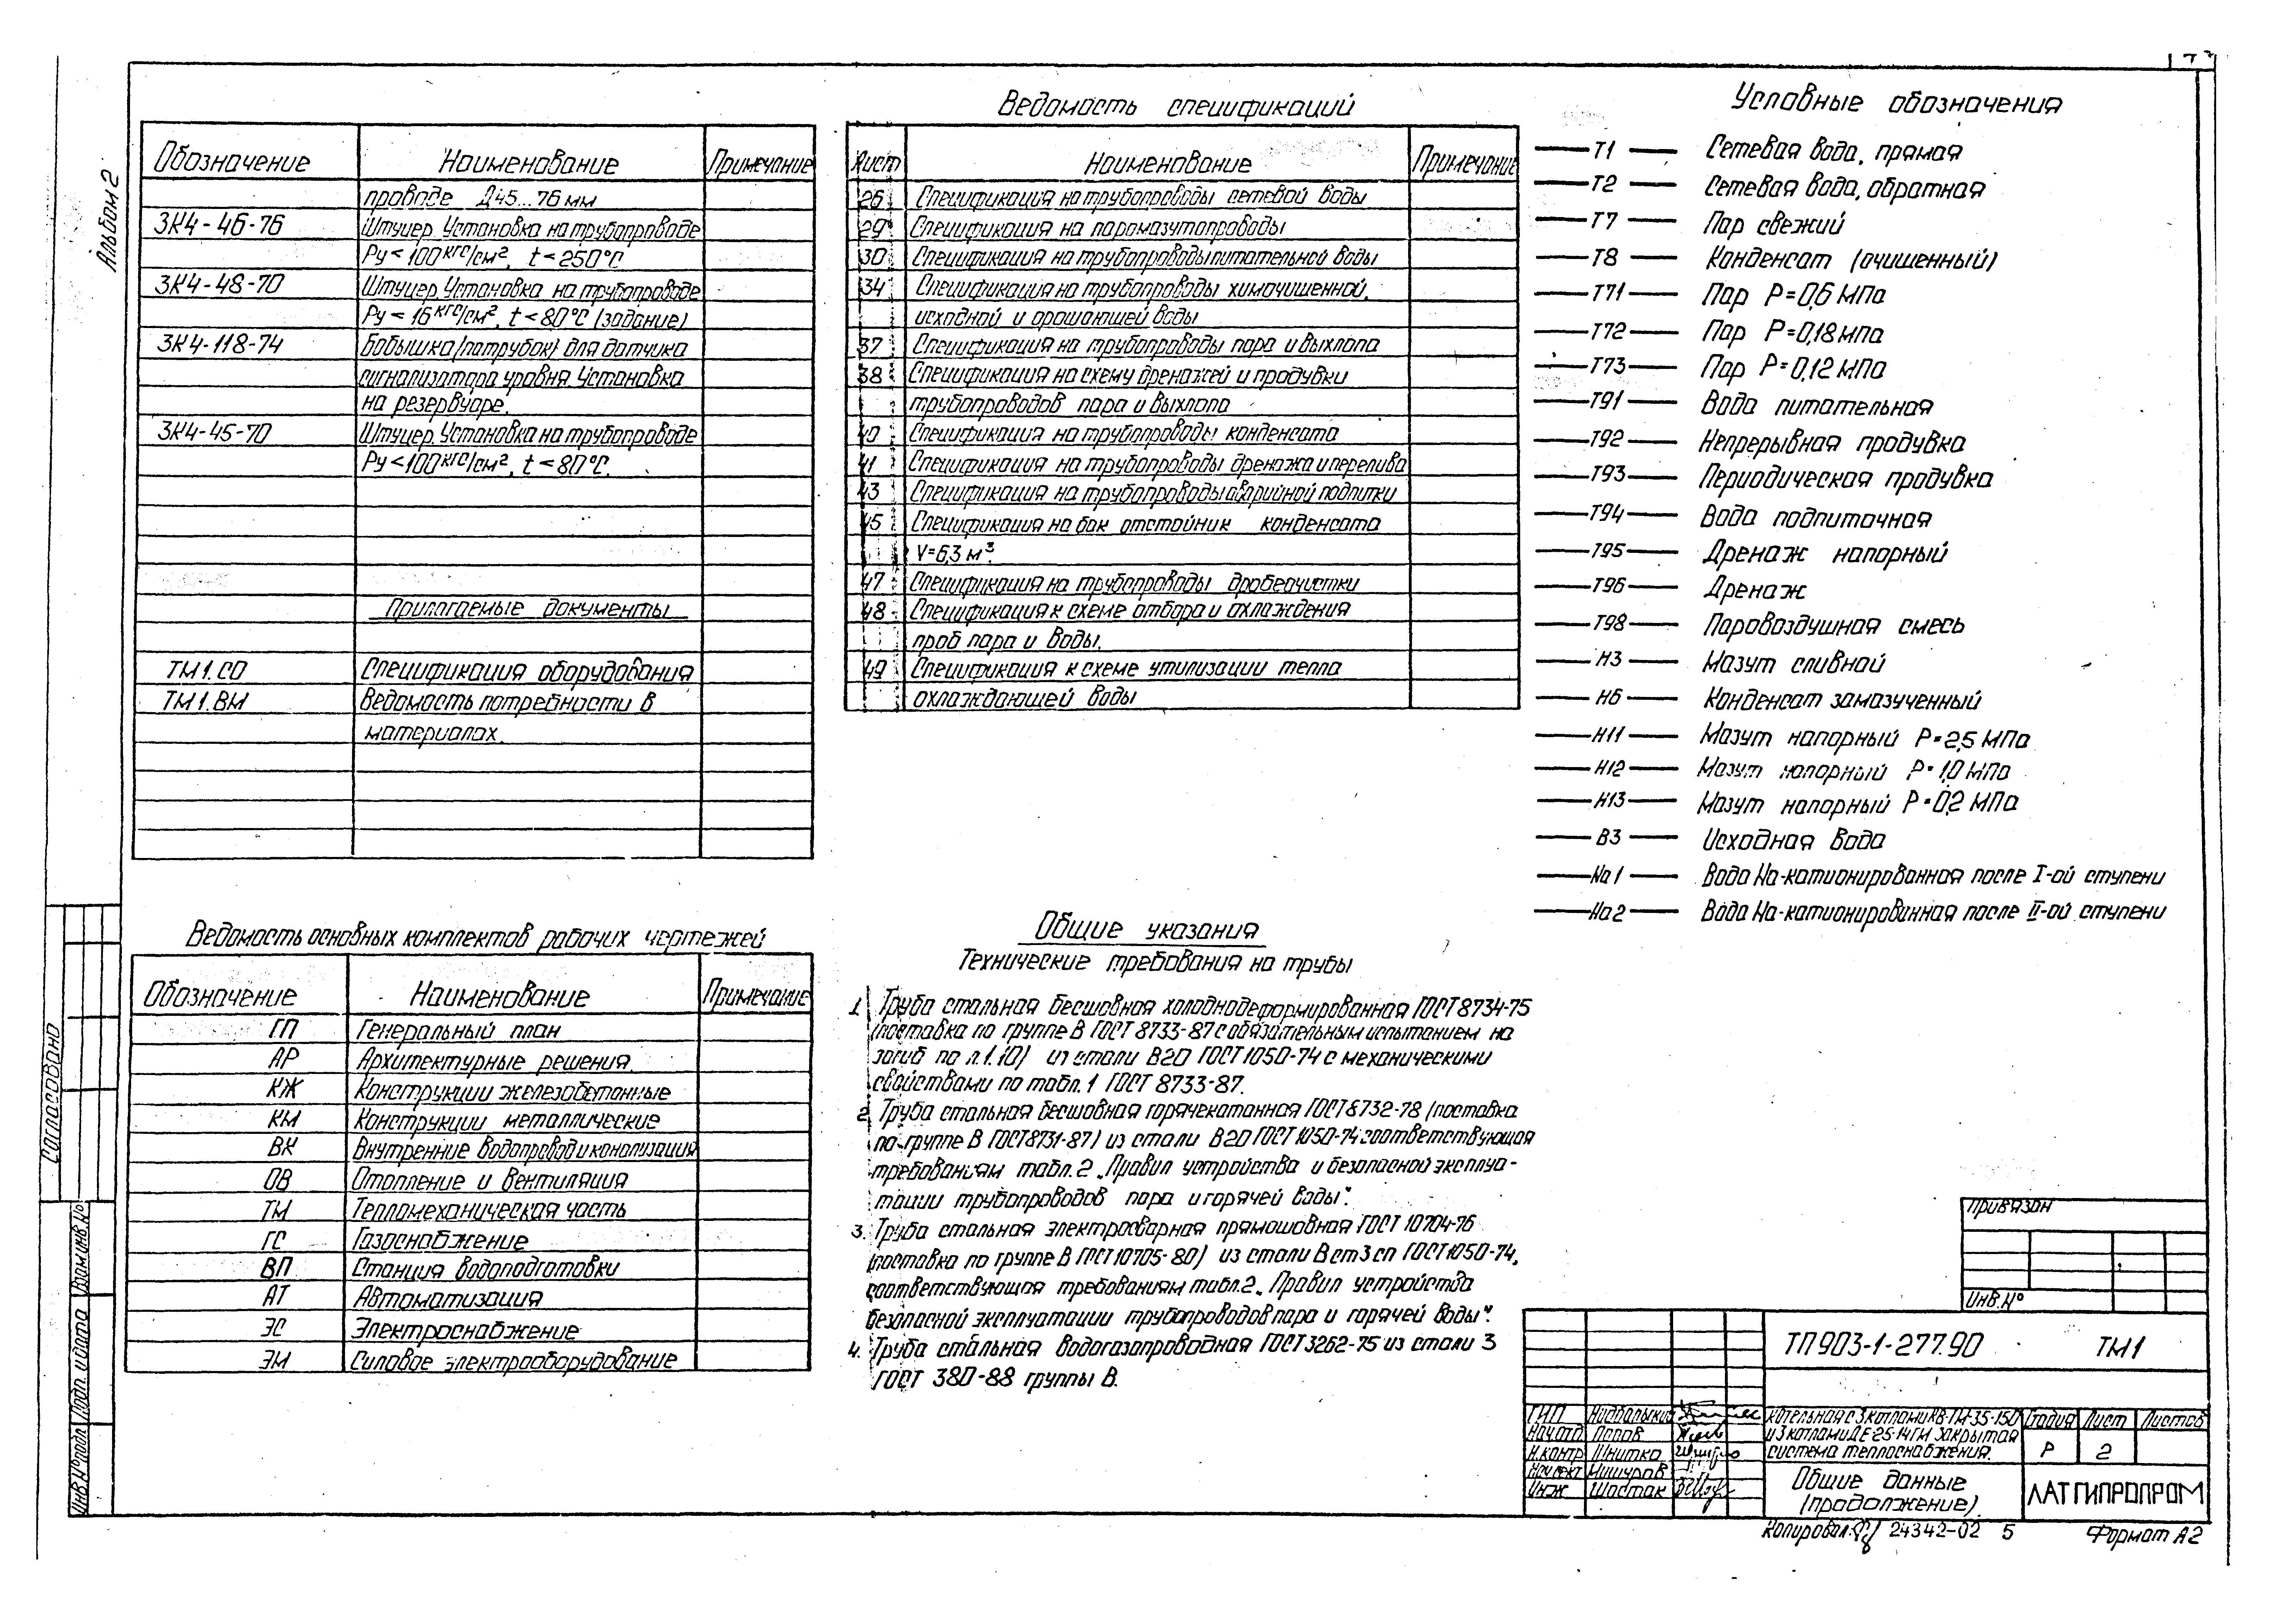 Альбом 2
Обозначение Наименование Примечание
проводе Д45...76 мм
ЗК4-46-76 Штуцер. Установка на трубопроводе
Ру<100 кгс/см², t<250°С
ЗК4-48-70 Штуцер. Установка на трубопроводе
Ру<16 кгс/см², t<80°С (задание)
ЗК4-118-74 Бобышка (патрубок) для датчика
сигнализатора уровня. Установка
на резервуаре.
ЗК4-45-70 Штуцер. Установка на трубопроводе
Ру<100 кгс/см², t<80°С.
Прилагаемые документы
ТМ1.СО Спецификация оборудования
ТМ1.ВМ Ведомость потребности в
материалах.
Ведомость основных комплектов рабочих чертежей
Обозначение Наименование Примечание
ГП Генеральный план
АР Архитектурные решения.
КЖ Конструкции железобетонные
КМ Конструкции металлические
ВК Внутренние водопровод и канализация
ОВ Отопление и вентиляция
ТМ Тепломеханическая часть
ГС Газоснабжение
ВП Станция водоподготовки
АТ Автоматизация
ЭС Электроснабжение
ЭМ Силовое электрооборудование
Ведомость спецификаций
Лист Наименование Примечание
26 Спецификация на трубопроводы сетевой воды
29 Спецификация на паромазутопроводы
30 Спецификация на трубопроводы питательной воды
34 Спецификация на трубопроводы химочищенной,
исходной и орошающей воды
37 Спецификация на трубопроводы пара и выхлопа
38 Спецификация на схему дренажей и продувки
трубопроводов пара и выхлопа
40 Спецификация на трубопроводы конденсата
41 Спецификация на трубопроводы дренажа и перелива
43 Спецификация на трубопроводы аварийной подпитки
45 Спецификация на бак отстойник конденсата
V=6,3 м³.
47 Спецификация на трубопроводы дробеочистки
48 Спецификация к схеме отбора и охлаждения
проб пара и воды.
49 Спецификация к схеме утилизации тепла
охлаждающей воды
Общие указания
Технические требования на трубы
1. Труба стальная бесшовная холоднодеформированная ГОСТ 8734-75
(поставка по группе В ГОСТ 8733-87 с обязательным испытанием на
загиб по п.1.10) из стали В20 ГОСТ 1050-74 с механическими
свойствами по табл. 1 ГОСТ 8733-87.
2. Труба стальная бесшовная горячекатанная ГОСТ 8732-78 (поставка
по группе В ГОСТ 8731-87) из стали В20 ГОСТ 1050-74 соответствующая
требованиям табл. 2 „Правил устройства и безопасной эксплуа-
тации трубопроводов пара и горячей воды".
3. Труба стальная электросварная прямошовная ГОСТ 10704-76
(поставка по группе В ГОСТ 10705-80) из стали Вст3сп ГОСТ 1050-74,
соответствующая требованиям табл. 2 „Правил устройства
безопасной эксплуатации трубопроводов пара и горячей воды".
4. Труба стальная водогазопроводная ГОСТ 3262-75 из стали 3
ГОСТ 380-88 группы В.
Условные обозначения
Т1 Сетевая вода, прямая
Т2 Сетевая вода, обратная
Т7 Пар свежий
Т8 Конденсат (очищенный)
Т71 Пар Р=0,6 МПа
Т72 Пар Р=0,18 МПа
Т73 Пар Р=0,12 МПа
Т91 Вода питательная
Т92 Непрерывная продувка
Т93 Периодическая продувка
Т94 Вода подпиточная
Т95 Дренаж напорный
Т96 Дренаж
Т98 Паровоздушная смесь
Н3 Мазут сливной
Н6 Конденсат замазученный
Н11 Мазут напорный Р=2,5 МПа
Н12 Мазут напорный Р=1,0 МПа
Н13 Мазут напорный Р=0,2 МПа
В3 Исходная вода
Na1 Вода Na-катионированная после I-ой ступени
Na2 Вода Na-катионированная после II-ой ступени
Согласовано
Взам.инв.№
Подп. и дата
Инв.№ подл.
Привязан
Инв.№
ТП 903-1-277.90 ТМ1
ГИП
Нач.отд Попов
Н.контр Шнитко
Мишуров
Инж Шостак
Котельная с 3 котлами КВ-ГМ-35-150
и 3 котлами ДЕ-25-14ГМ. Закрытая
система теплоснабжения.
Стадия Лист Листов
Р 2
Общие данные
(продолжение).
ЛАТГИПРОПРОМ
Копировал: 24342-02 5 Формат А2